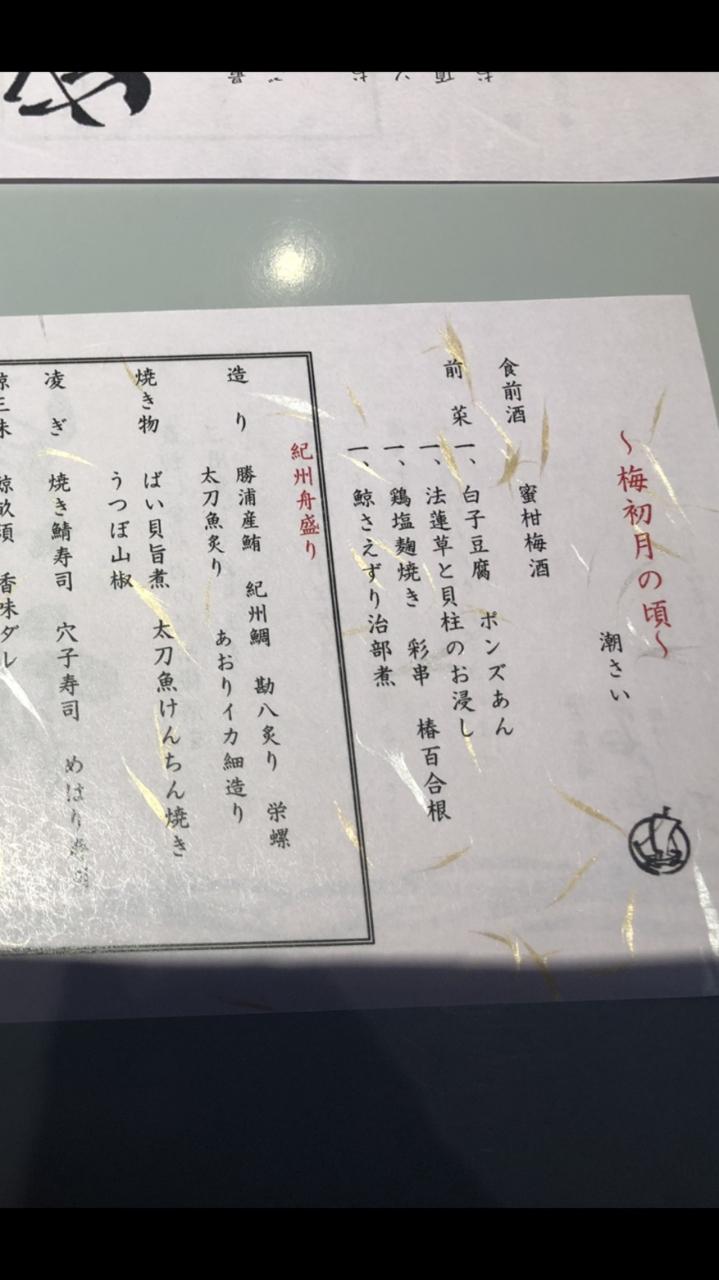 ~梅初月の頃~
潮さい
食前酒 蜜柑梅酒
前菜
一、白子豆腐 ポンズあん
一、法蓮草と貝柱のお浸し
一、鶏塩麹焼き 彩串 椿百合根
一、鯨さえずり治部煮
紀州舟盛り
造り 勝浦産鮪 紀州鯛 勘八炙り 栄螺
太刀魚炙り あおりイカ細造り
焼き物 ばい貝旨煮 太刀魚けんちん焼き
うつぼ山椒
凌ぎ 焼き鯖寿司 穴子寿司 めはり寿司
三味 香味ダレ